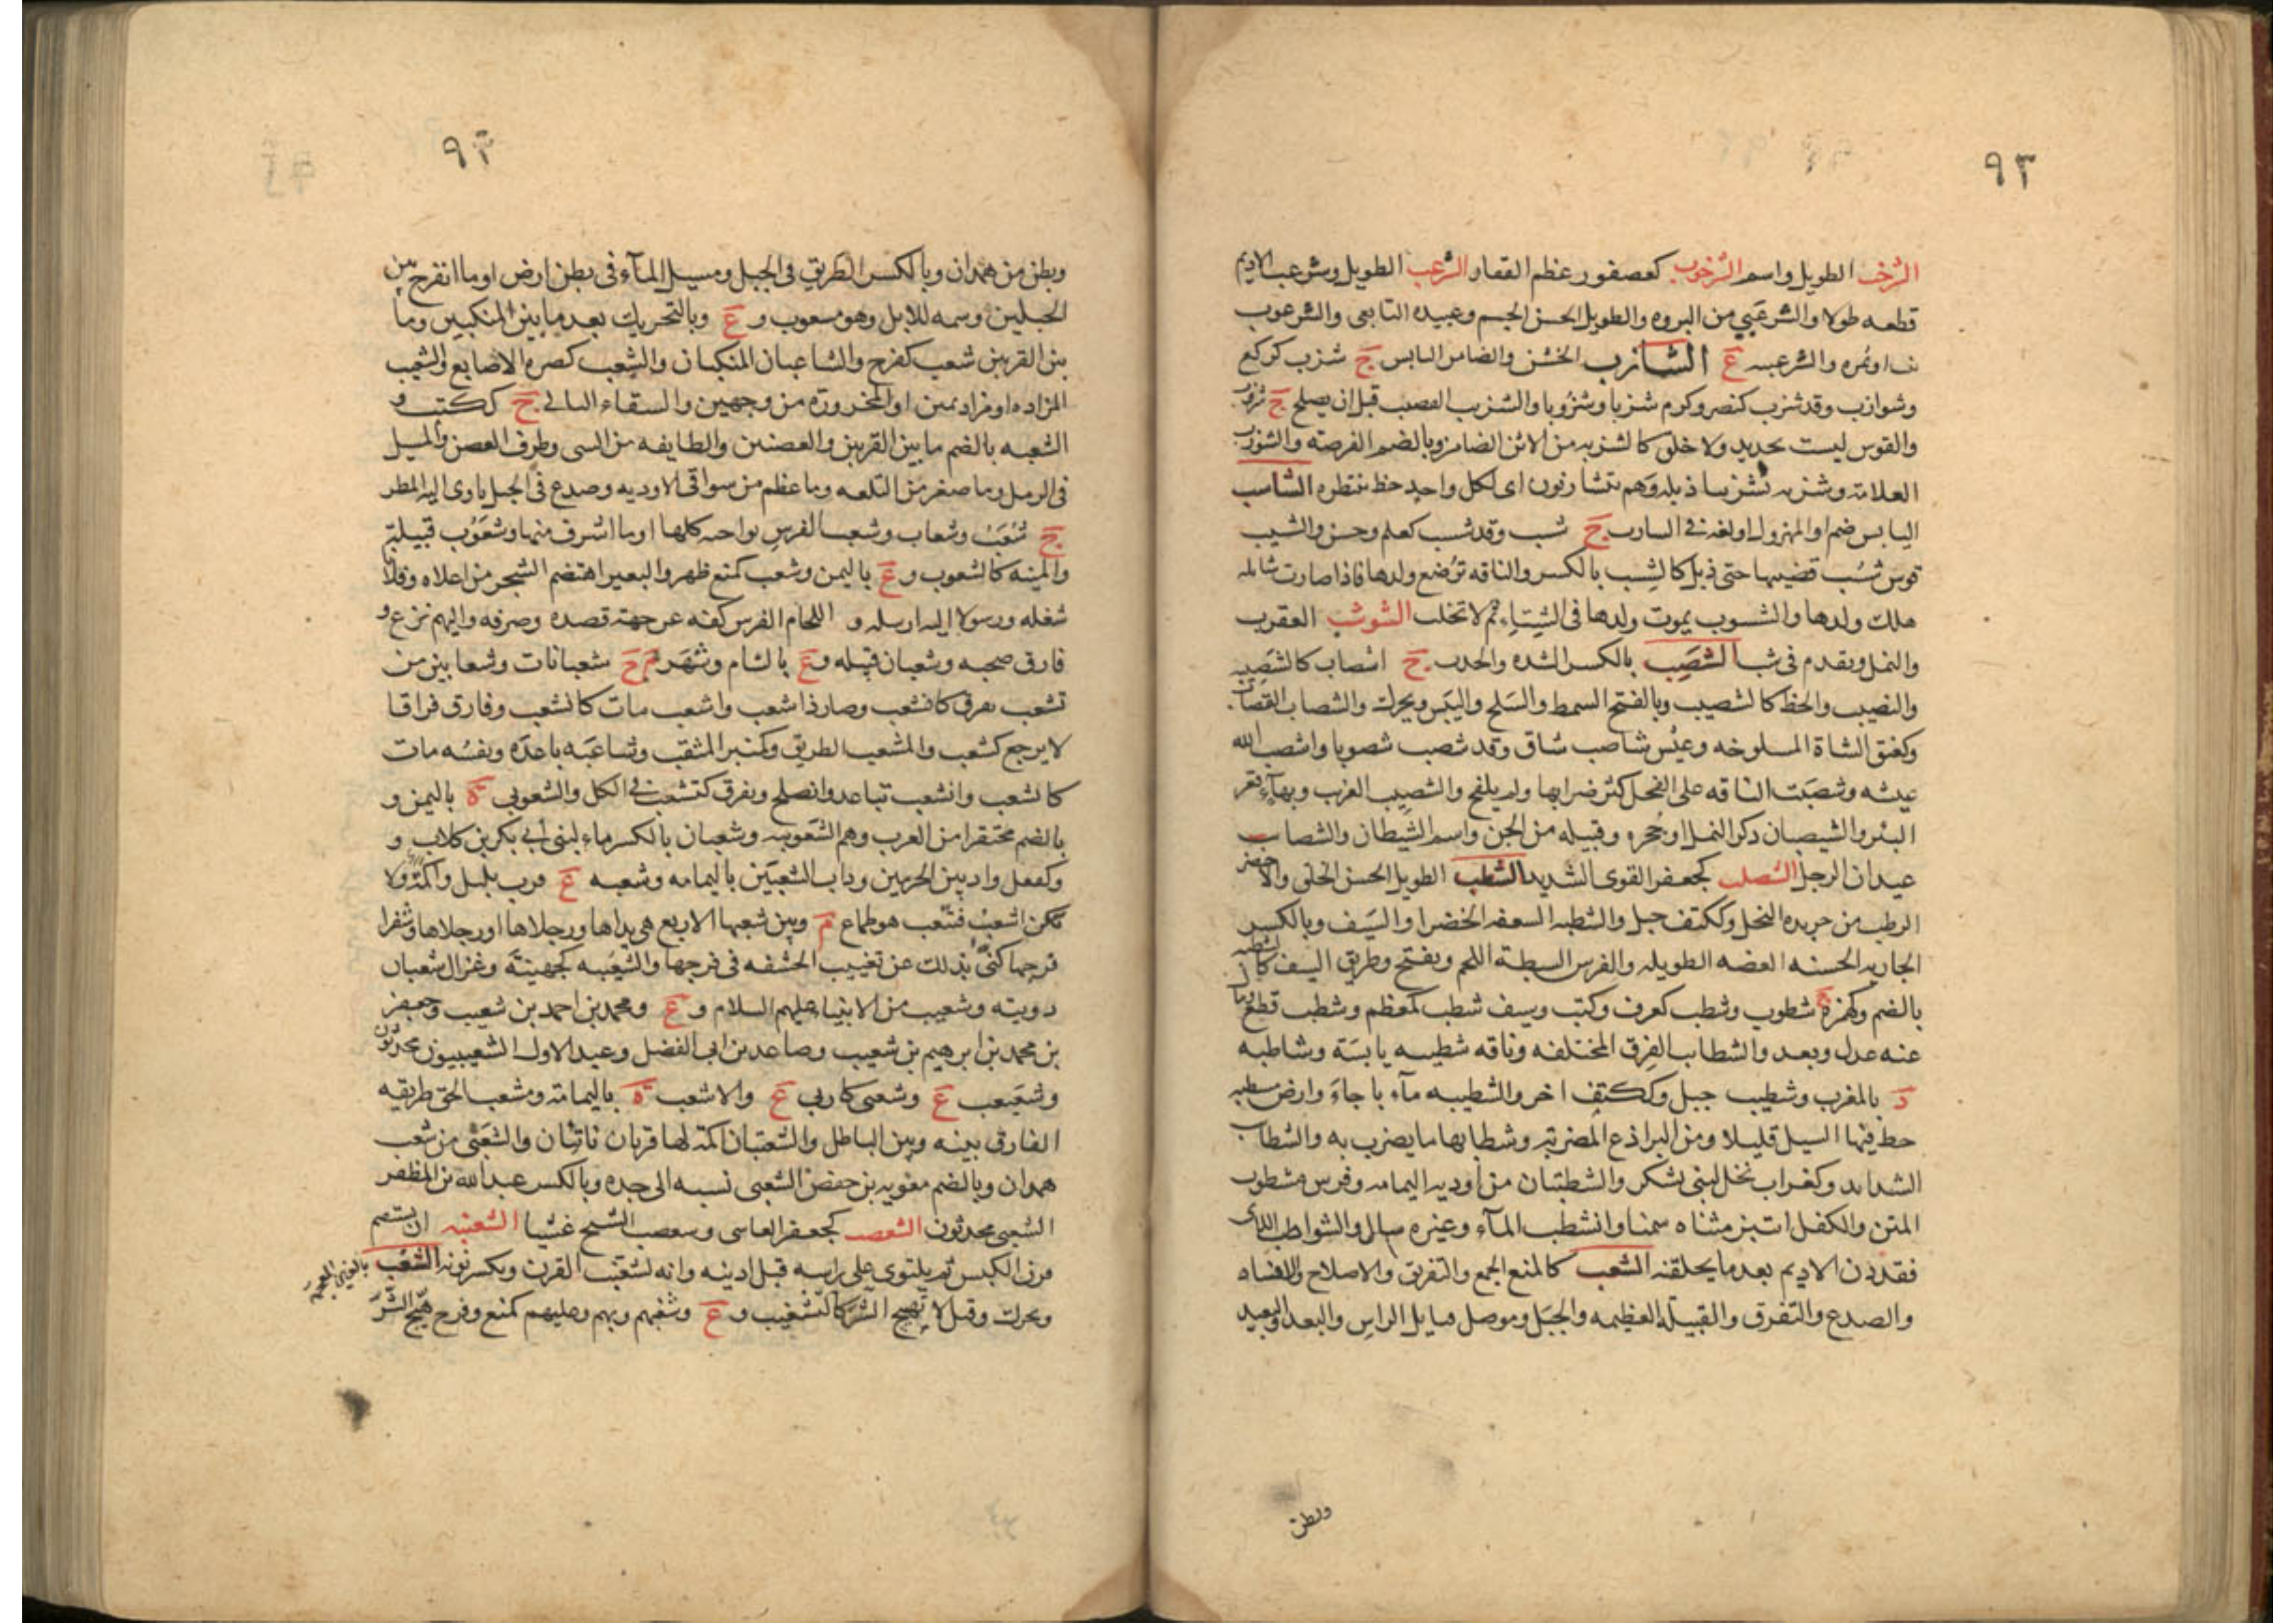 ٩٣
الشرخب الطويل واسم الشرخوب كعصفور عظم الفقار الشرعب الطويل وشرعب الاديم
قطعه طولا والشرعبي من البرود والطويل الحسن الجسم وعبيده التابعى والشرعوب
نبت او ثمره والشرعبيه ع الشازب الخشن والضامر اليابس ج شزب كركع
وشوازب وقد شزب كنصر وكرم شزبا وشزوبا والشزيب القضيب قبل ان يصلح ج شزوب
والقوس ليست بجديد ولا خلق كالشزبه من الاتن الضامر وبالضم الفرصة والشوزب
العلامة وشزبه تشزيبا ذبله وهم متشازبون اى لكل واحد حظ ينتظره الشاسب
اليابس ضمرا والمهزول او لغه فى الشازب ج شسب وقد شسب كعلم وحسن والشسيب
قوس شسب قضيبها حتى ذبل كالشسب بالكسر والناقه ترضع ولدها فاذا صارت شائله
هلك ولدها والشسوب يموت ولدها فى الشتاء ثم لا تحلب الشوشب العقرب
والنمل وتقدم فى شب الشصب بالكسر الشده والجدب ج اشصاب كالشصيبه
والنصيب والحظ كالشصيب وبالفتح السمط والسلخ واليبس ويحرك والشصاب القصاب
وكعنق الشاة المسلوخه وعيش شاصب شاق وقد شصب شصوبا واشصب الله
عيشه وشصبت الناقه على الفحل كثر ضرابها ولم يلقح والشصيب الغريب وبهاء قعر
البئر والشيصبان ذكر النمل او جحره وقبيله من الجن واسم الشيطان والشصاب
عيدان الرجل الشصلب كجعفر القوى الشديد الشطب الطويل الحسن الخلق والاخضر
الرطب من جريده النخل وككتف جبل والشطبه السعفه الخضرا والسيف وبالكسر
الجاريه الحسنه الغضه الطويله والفرس السبطة اللحم ويفتح وطريق السيف كالشطبه
بالضم وكهمزة ج شطوب وشطب كغرف وكتب وسيف شطب كمعظم وشطب قطع ومال
عنه عدل وبعد والشطايب الفرق المختلفه وناقه شطيبه يابسة وشاطبه
د بالمغرب وشطيب جبل وككتف اخر والشطيبه مآء باجاء وارض مشطبه
خط فيها السيل قليلا ومن البراذع المضربة وشطابها ما يضرب به والشطاب
الشدايد وكغراب نخل لبنى يشكر والشطبتان من اوديه اليمامه وفرس مشطوب
المتن والكفل انتبز متناه سمنا وانشطب المآء وغيره سال والشواطب اللاى
يقددن الاديم بعد ما يخلقنه الشعب كالمنع الجمع والتفريق والاصلاح والافساد
والصدع والتفرق والقبيله العظيمه والجبل وموصل قبايل الراس والبعد والبعيد
وبطن
٩٣
وبطن من همدان وبالكسر الطريق فى الجبل ومسيل المآء فى بطن ارض او ما انفرج بين
الجبلين وسمه للابل وهو مشعوب و ع وبالتحريك بعد ما بين المنكبين وما
بين القرنين شعب كفرح والشاعبان المنكبان والشعب كصره الاصابع والشعيب
المزاده او من اديمين او المخروزة من وجهين والسقاء البالى ج ككتب و
الشعبه بالضم ما بين القرنين والغصنين والطايفه من الشى وطرف الغصن والمسيل
فى الرمل وما صغر من التلعه وما عظم من سواقى الاوديه وصدع فى الجبل ياوى اليه المطر
ج شعب وشعاب وشعب الفرس نواحيه كلها او ما اشرف منها وشعوب قبيلة
والمنيه كالشعوب و ع باليمن وشعب كمنع ظهر والبعير اهتضم الشجر من اعلاه وفلانا
شغله ورسولا اليه ارسله و اللجام الفرس كفه عن جهة قصده وصرفه واليهم نزع و
فارق صحبه وشعبان قبيله و ع بالشام وشهر م ج شعبانات وشعابين من
تشعب تفرق كانشعب وصار ذا شعب واشعب مات كانشعب وفارق فراقا
لا يرجع كشعب والمشعب الطريق وكمنبر المثقب وشاعبه باعده ونفسه مات
كانشعب وانشعب تباعد وانصلح وتفرق كتشعب فى الكل والشعوبى ة باليمن و
بالضم محتقر امر العرب وهم الشعوبيه وشعبان بالكسر ماء لبنى أبى بكر بن كلاب و
وكقفل واد بين الحرمين وذات الشعبين باليمامه وشعبه ع قرب يليل والمدد ولا
تكن اشعب فتتعب هو طماع م وبين شعبها الاربع هى يداها ورجلاها او رجلاها وشفرا
فرجها كنى بذلك عن تغييب الحشفه فى فرجها والشعيبه كجهينة وغزال شعبان
دويبة وشعيب من الانبياء عليهم السلام و ع ومحمد بن احمد بن شعيب وجعفر
بن محمد بن ابرهيم بن شعيب وصاعد بن ابى الفضل وعبد الاول الشعيبيون محدثون
وشعبعب ع وشعبى كاربى ع والاشعب ة باليمامة ومشعب الحق طريقه
الفارق بينه وبين الباطل والشعبتان اكمة لها قرنان ناتئان والشعبى من شعب
همدان وبالضم معويه بن حفص الشعبى نسبه الى جده وبالكسر عبد الله بن المظفر
الشعبى محدثون الشعصب كجعفر العاسى وشعصب الشيخ عسيا الشعنبه ان يستقيم
قرنى الكبش ثم يلتوى على راسه قبل اذنيه وانه لشعنب القرن وبكسر نونه الشغب بالغين المعجمة
ويحرك وقيل لا تهييج الشر كالتشغيب و ع وشغبهم وبهم وعليهم كمنع وفرح هيج الشر